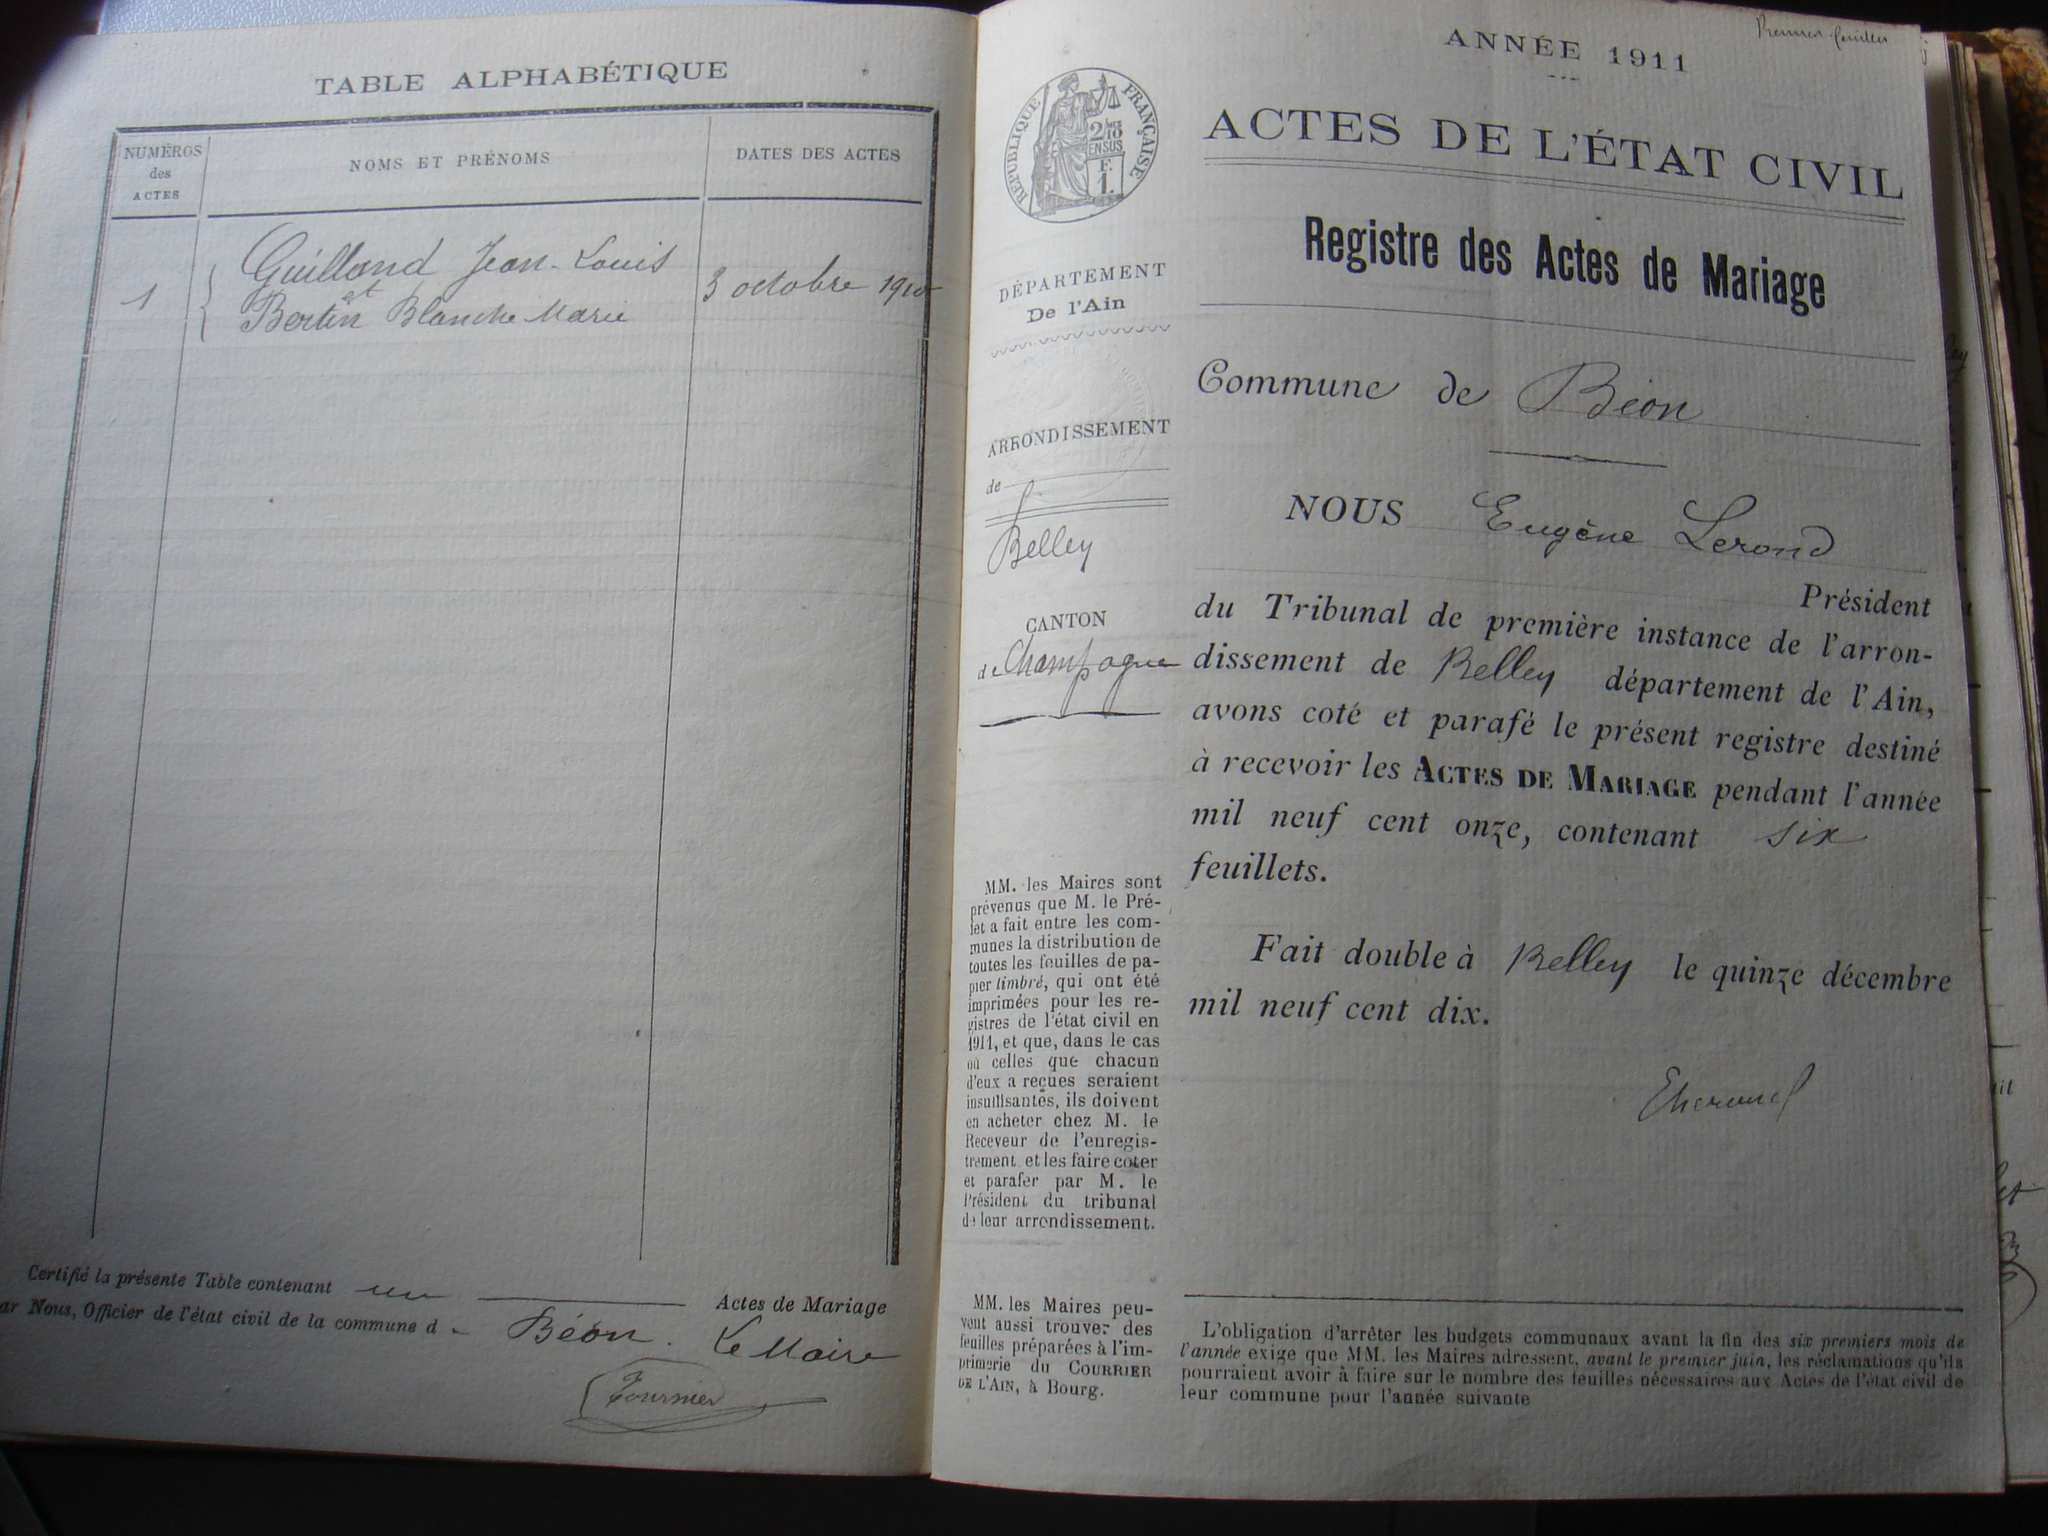 TABLE ALPHABÉTIQUE
NUMÉROS
des
ACTES
NOMS ET PRÉNOMS
DATES DES ACTES
1
Guilland Jean-Louis
et
Bertin Blanche Marie
3 octobre 1910
Certifié la présente Table contenant un Actes de Mariage
ar Nous, Officier de l'état civil de la commune d Béon. Le Maire
Fournier
Premier feuillet
ANNÉE 1911
RÉPUBLIQUE FRANÇAISE
2/10
EN SUS
F.
1.
ACTES DE L'ÉTAT CIVIL
Registre des Actes de Mariage
DÉPARTEMENT
De l'Ain
ARRONDISSEMENT
de
Belley
CANTON
de Champagne
MM. les Maires sont
prévenus que M. le Pré-
fet a fait entre les com-
munes la distribution de
toutes les feuilles de pa-
pier timbré, qui ont été
imprimées pour les re-
gistres de l'état civil en
1911, et que, dans le cas
où celles que chacun
d'eux a reçues seraient
insuffisantes, ils doivent
en acheter chez M. le
Receveur de l'enregis-
trement et les faire coter
et parafer par M. le
Président du tribunal
de leur arrondissement.
MM. les Maires peu-
vent aussi trouver des
feuilles préparées à l'im-
primerie du COURRIER
DE L'AIN, à Bourg.
Commune de Béon
NOUS Eugène Lerond
Président
du Tribunal de première instance de l'arron-
dissement de Belley département de l'Ain,
avons coté et parafé le présent registre destiné
à recevoir les ACTES DE MARIAGE pendant l'année
mil neuf cent onze, contenant six
feuillets.
Fait double à Belley le quinze décembre
mil neuf cent dix.
L'obligation d'arrêter les budgets communaux avant la fin des six premiers mois de
l'année exige que MM. les Maires adressent, avant le premier juin, les réclamations qu'ils
pourraient avoir à faire sur le nombre des feuilles nécessaires aux Actes de l'état civil de
leur commune pour l'année suivante